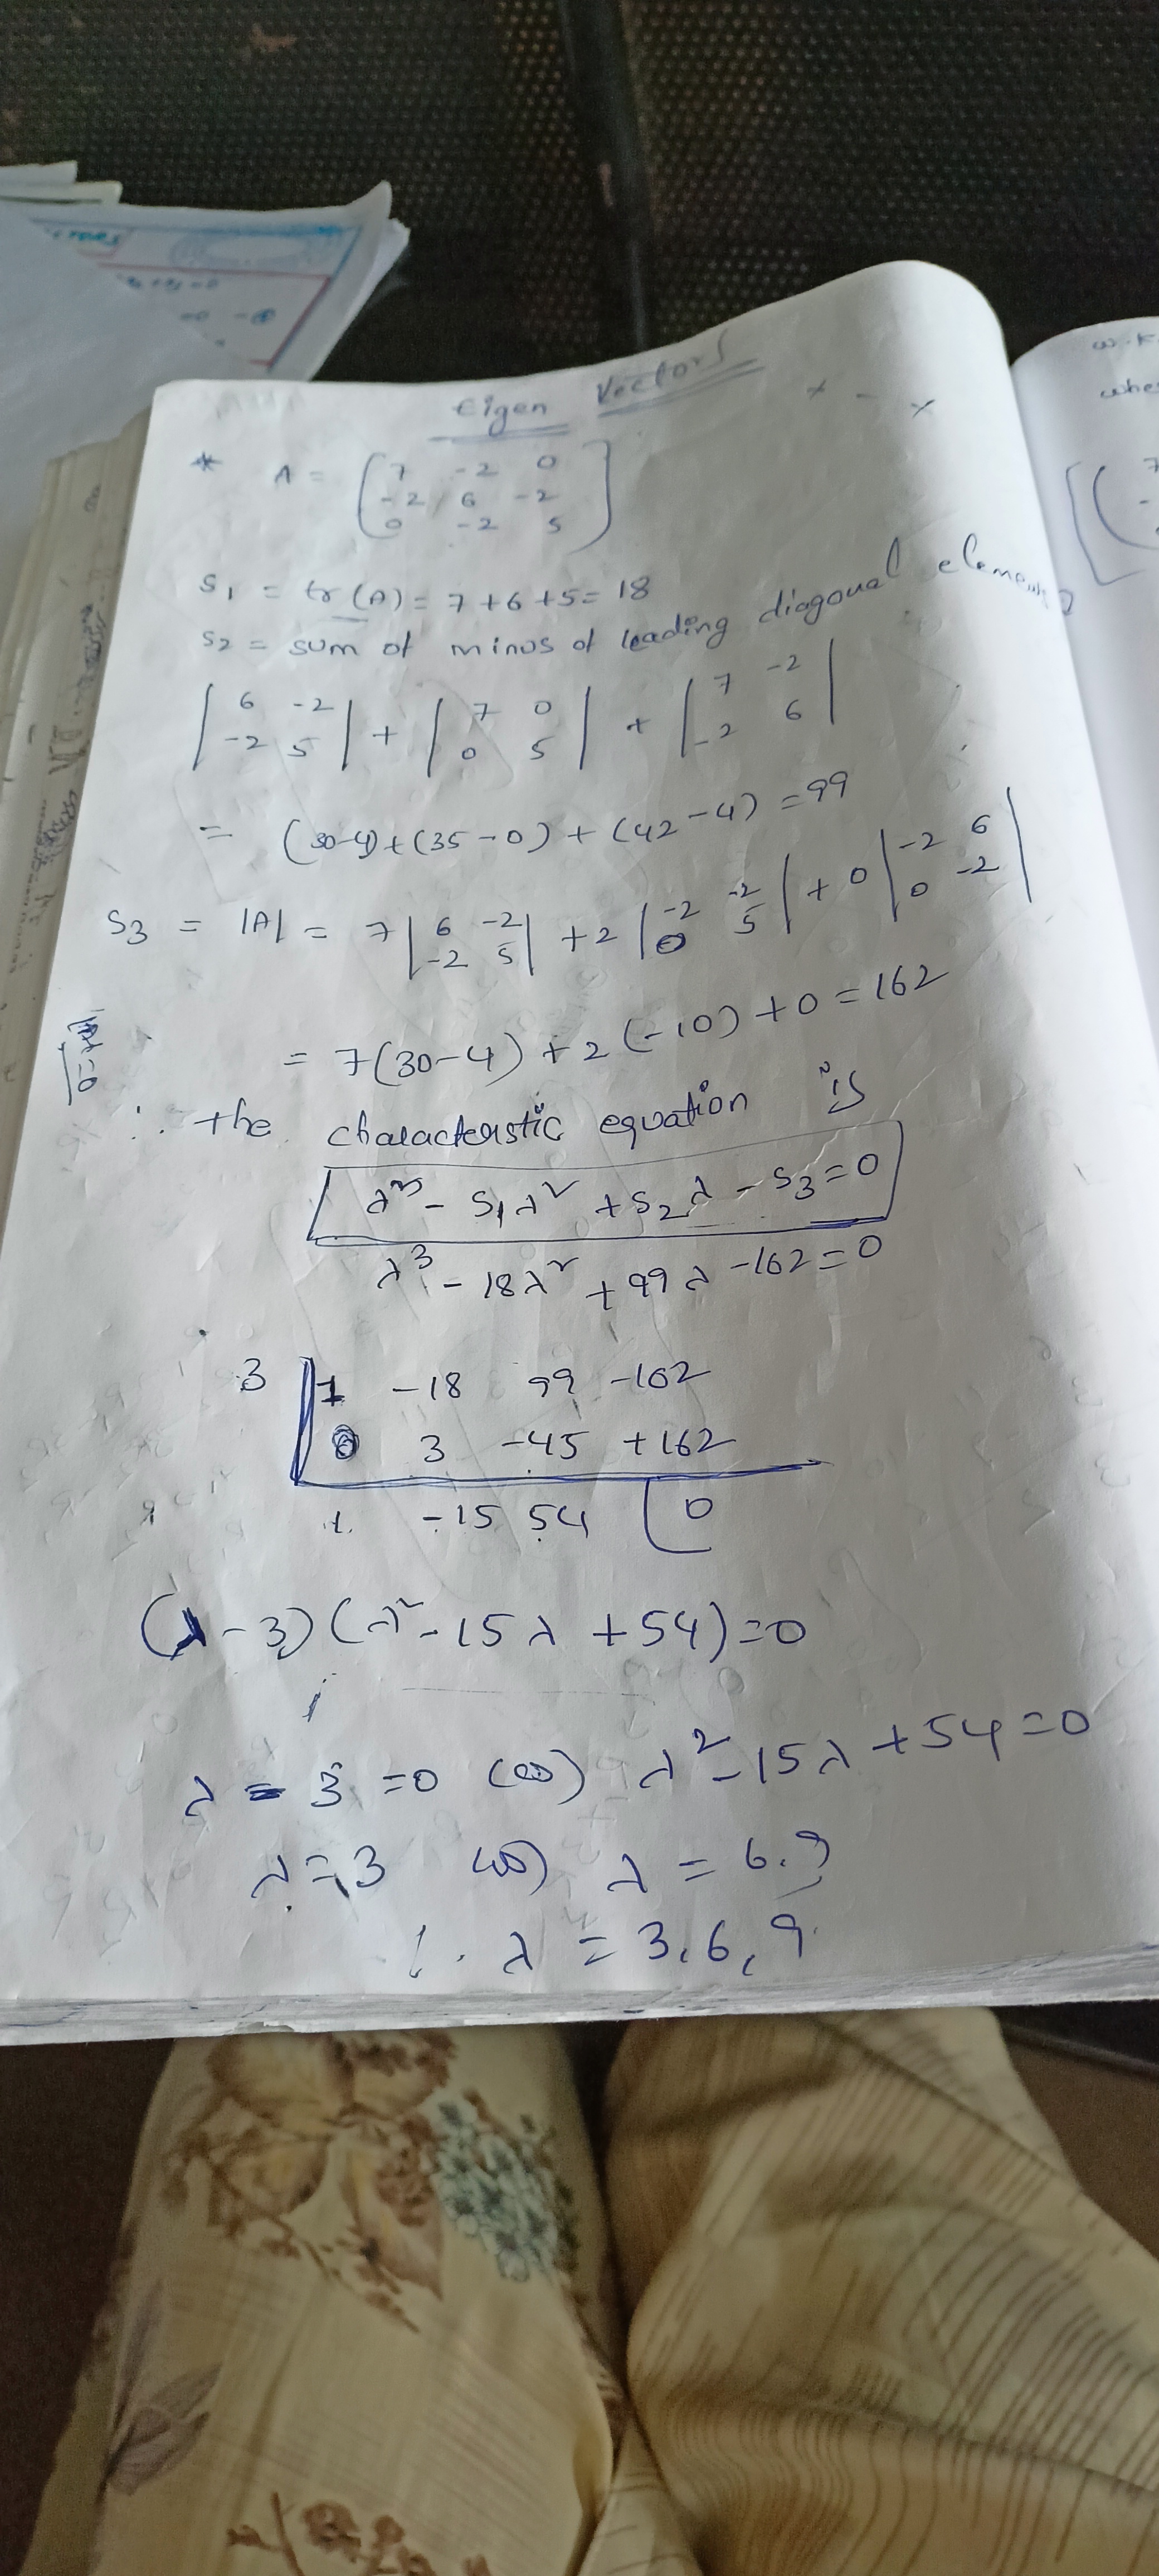 Eigen Vectors
* A = [7 -2 0
-2 6 -2
0 -2 5]
S1 = tr(A) = 7+6+5 = 18
S2 = sum of minos of leading diagonal elements
|6 -2
-2 5| + |7 0
0 5| + |7 -2
-2 6|
= (30-4)+(35-0)+(42-4) = 99
S3 = |A| = 7|6 -2
-2 5| +2|-2 -2
0 5| + 0|-2 6
0 -2|
= 7(30-4)+2(-10)+0 = 162
∴ the characteristic equation is
λ³ - S1λ² + S2λ - S3 = 0
λ³ - 18λ² + 99λ - 162 = 0
3 | 1 -18 99 -162
0 3 -45 +162
1 -15 54 | 0
(λ-3)(λ²-15λ+54)=0
λ-3=0 (or) λ²-15λ+54=0
λ=3 (or) λ=6,9
∴ λ=3,6,9
w.k
whe